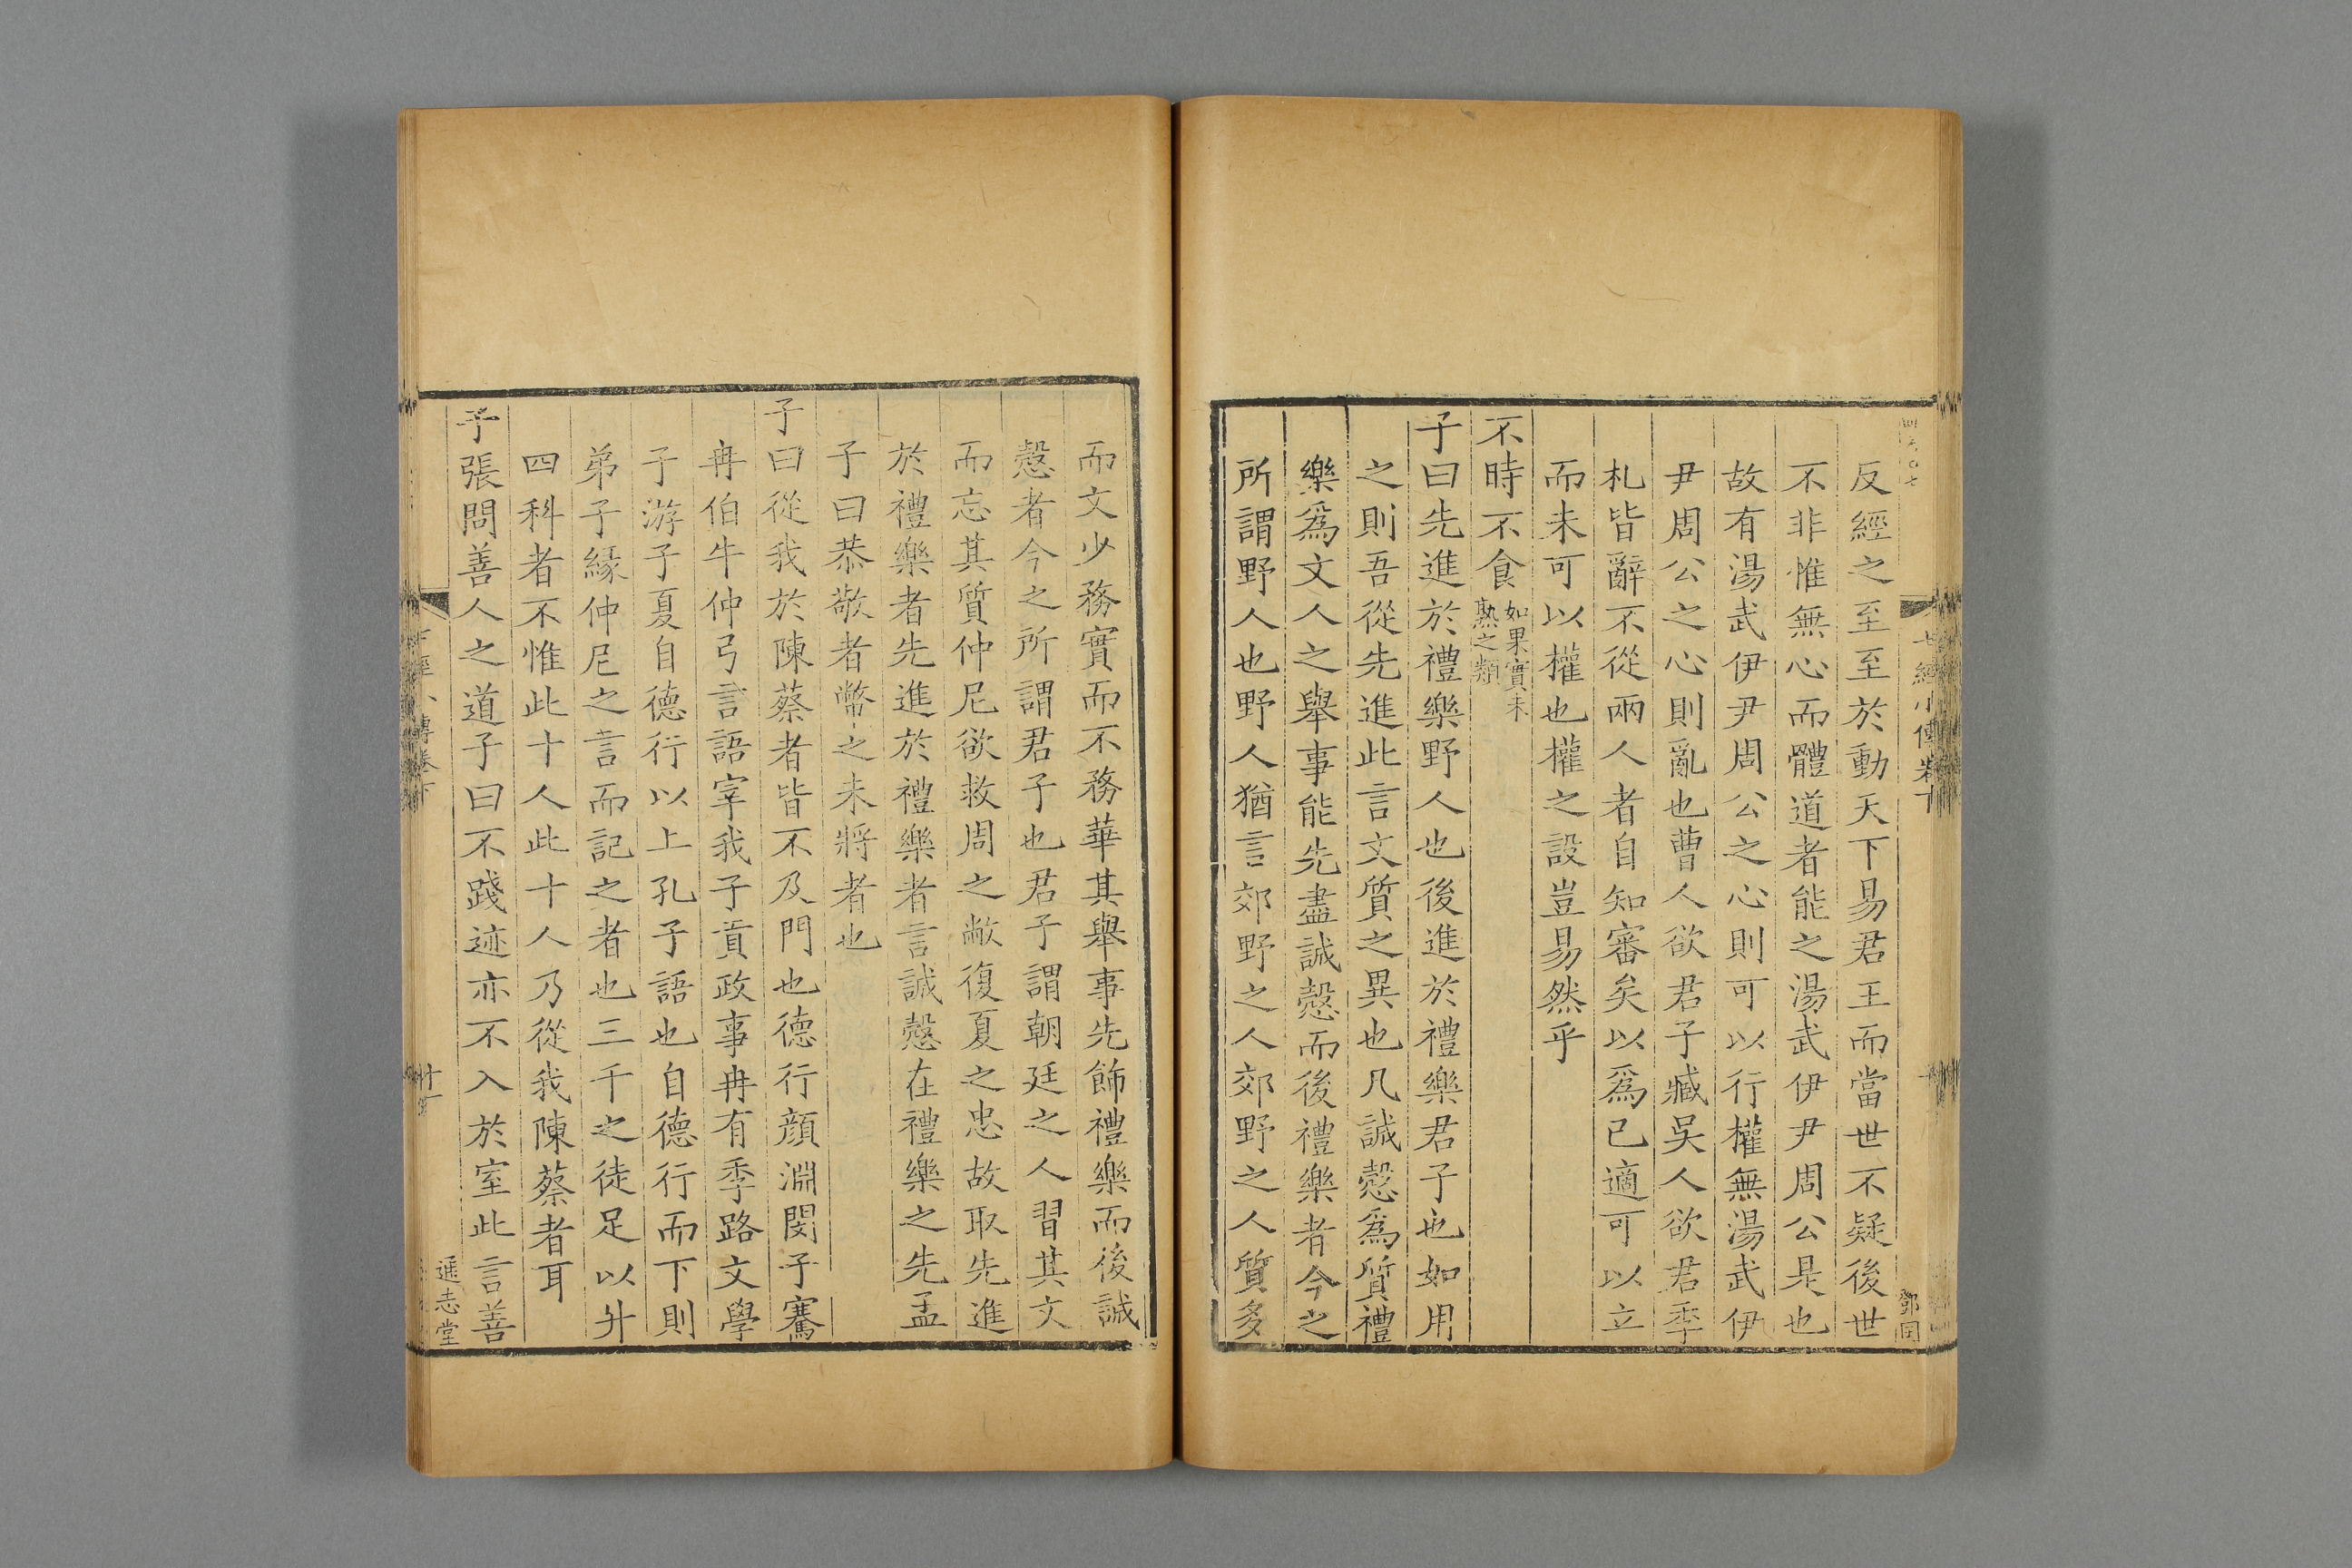 七經小傳卷下
鄧同
反經之至至於動天下易君王而當世不疑後世
不非惟無心而體道者能之湯武伊尹周公是也
故有湯武伊尹周公之心則可以行權無湯武伊
尹周公之心則亂也曹人欲君子臧吳人欲君季
札皆辭不從兩人者自知審矣以為已適可以立
而未可以權也權之設豈易然乎
不時不食如果實未
熟之類
子曰先進於禮樂野人也後進於禮樂君子也如用
之則吾從先進此言文質之異也凡誠愨為質禮
樂爲文人之舉事能先盡誠愨而後禮樂者今之
所謂野人也野人猶言郊野之人郊野之人質多
而文少務實而不務華其舉事先飾禮樂而後誠
愨者今之所謂君子也君子謂朝廷之人習其文
而忘其質仲尼欲救周之敝復夏之忠故取先進
於禮樂者先進於禮樂者言誠愨在禮樂之先孟
子曰恭敬者幣之未將者也
子曰從我於陳蔡者皆不及門也德行顏淵閔子騫
冉伯牛仲弓言語宰我子貢政事冉有季路文學
子游子夏自德行以上孔子語也自德行而下則
弟子緣仲尼之言而記之者也三千之徒足以升
四科者不惟此十人此十人乃從我陳蔡者耳
子張問善人之道子曰不踐迹亦不入於室此言善
經小傳卷下
廿一
通志堂